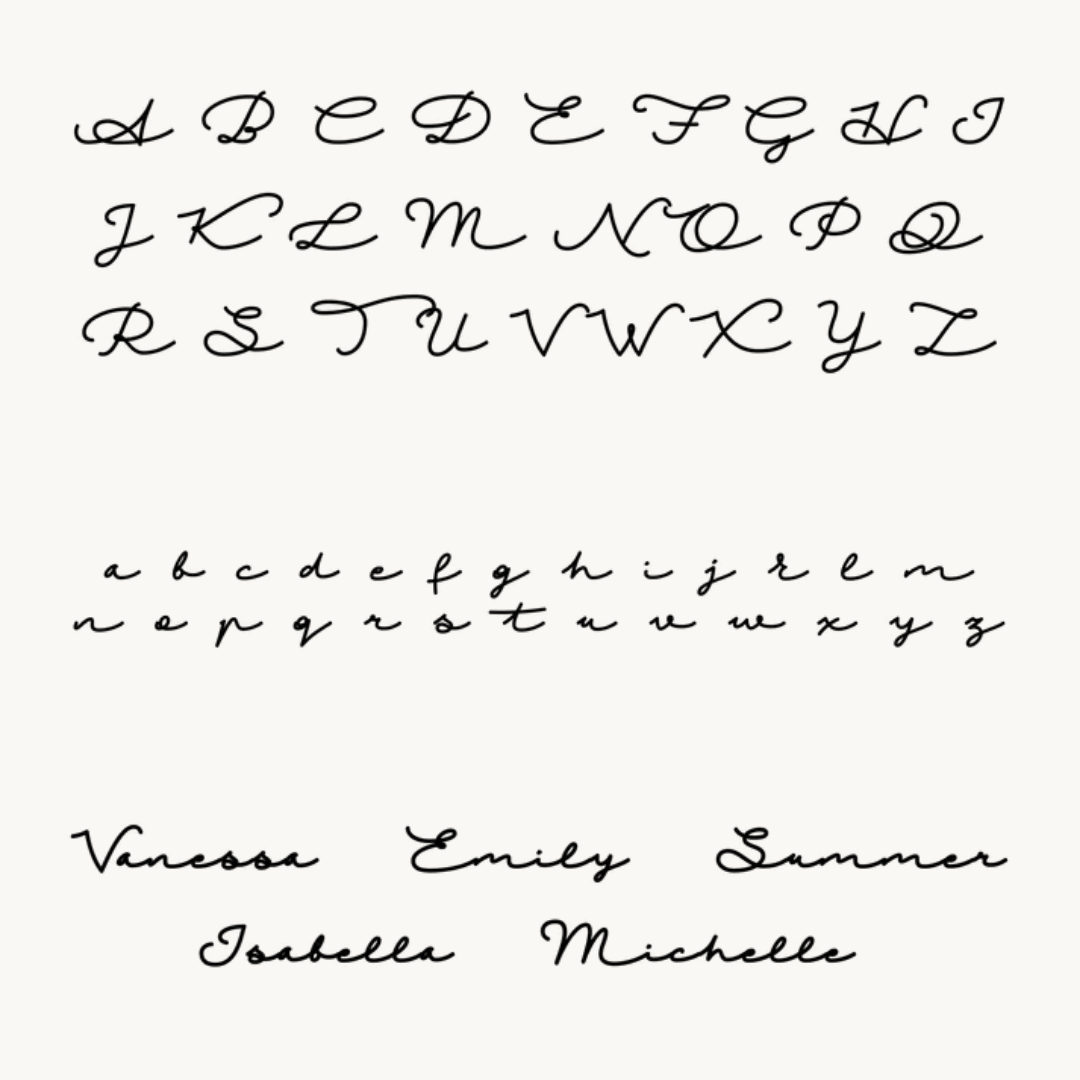 A B C D E F G H I
J K L M N O P Q
R S T U V W X Y Z
a b c d e f g h i j k l m
n o p q r s t u v w x y z
Vanessa Emily Summer
Isabella Michelle